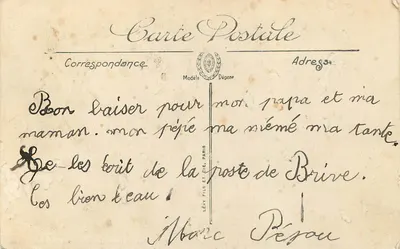 Carte Postale
Correspondance
Adresse
Modèle Déposé
Bon baiser pour mon papa et ma
maman. mon pépé ma mémé ma tante.
Je les écrit de la poste de Brive.
Ces bien beau!
Marc
LÉVY FILS ET CIE, PARIS